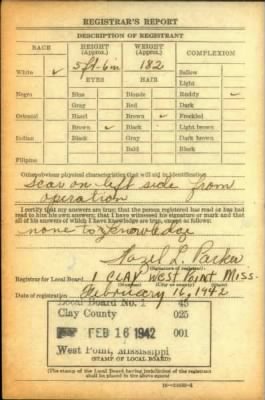 REGISTRAR'S REPORT
DESCRIPTION OF REGISTRANT
RACE HEIGHT (Approx.) WEIGHT (Approx.) COMPLEXION
White ✓ 5 ft-6 in 182 Sallow
EYES HAIR Light
Negro Blue Blonde Ruddy ✓
Gray Red Dark
Oriental Hazel Brown ✓ Freckled
Brown ✓ Black Light brown
Indian Black Gray Dark brown
Bald Black
Filipino
Other obvious physical characteristics that will aid in identification
Scar on left side from
operation
I certify that my answers are true; that the person registered has read or has had
read to him his own answers; that I have witnessed his signature or mark and that
all of his answers of which I have knowledge are true, except as follows:
none to knowledge
Hazel L. Parker
(Signature of registrar)
Registrar for Local Board 1 CLAY West Point Miss.
Date of registration February 16, 1942
Local Board No. 1 45
Clay County 025
FEB 16 1942 001
West Point, Mississippi
(STAMP OF LOCAL BOARD)
(The stamp of the Local Board having jurisdiction of the registrant
shall be placed in the above space)